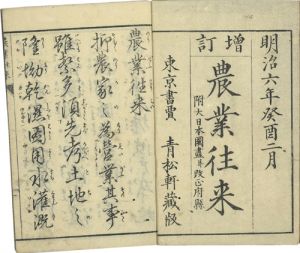 明治六年癸酉二月
増訂
農業往来
附大日本國盡并改正府縣
東京書賈 青松軒藏版
農業往来
抑農家之為営業其事
雖繁多須先考土地之
隆坳乾濕圃用水灌漑